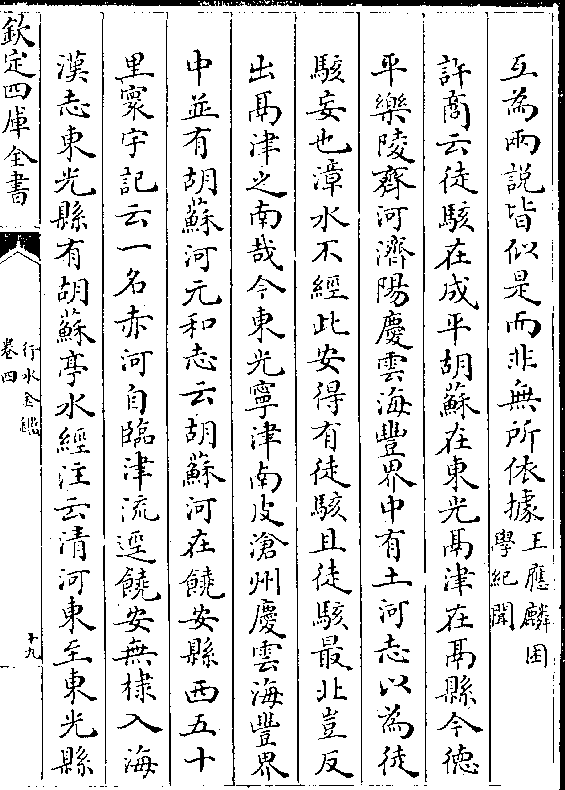 互為兩說皆似是而非無所依據王應麟困
學紀聞
許商云徒駭在成平胡蘇在東光鬲津在鬲縣今德
平樂陵齊河濟陽慶雲海豐界中有土河志以為徒
駭妄也漳水不經此安得有徒駭且徒駭最北豈反
出鬲津之南哉今東光寧津南皮滄州慶雲海豐界
中並有胡蘇河元和志云胡蘇河在饒安縣西五十
里寰宇記云一名赤河自臨津流逕饒安無棣入海
漢志東光縣有胡蘇亭水經注云清河東至東光縣
欽定四庫全書
行水金鑑
卷四
十九